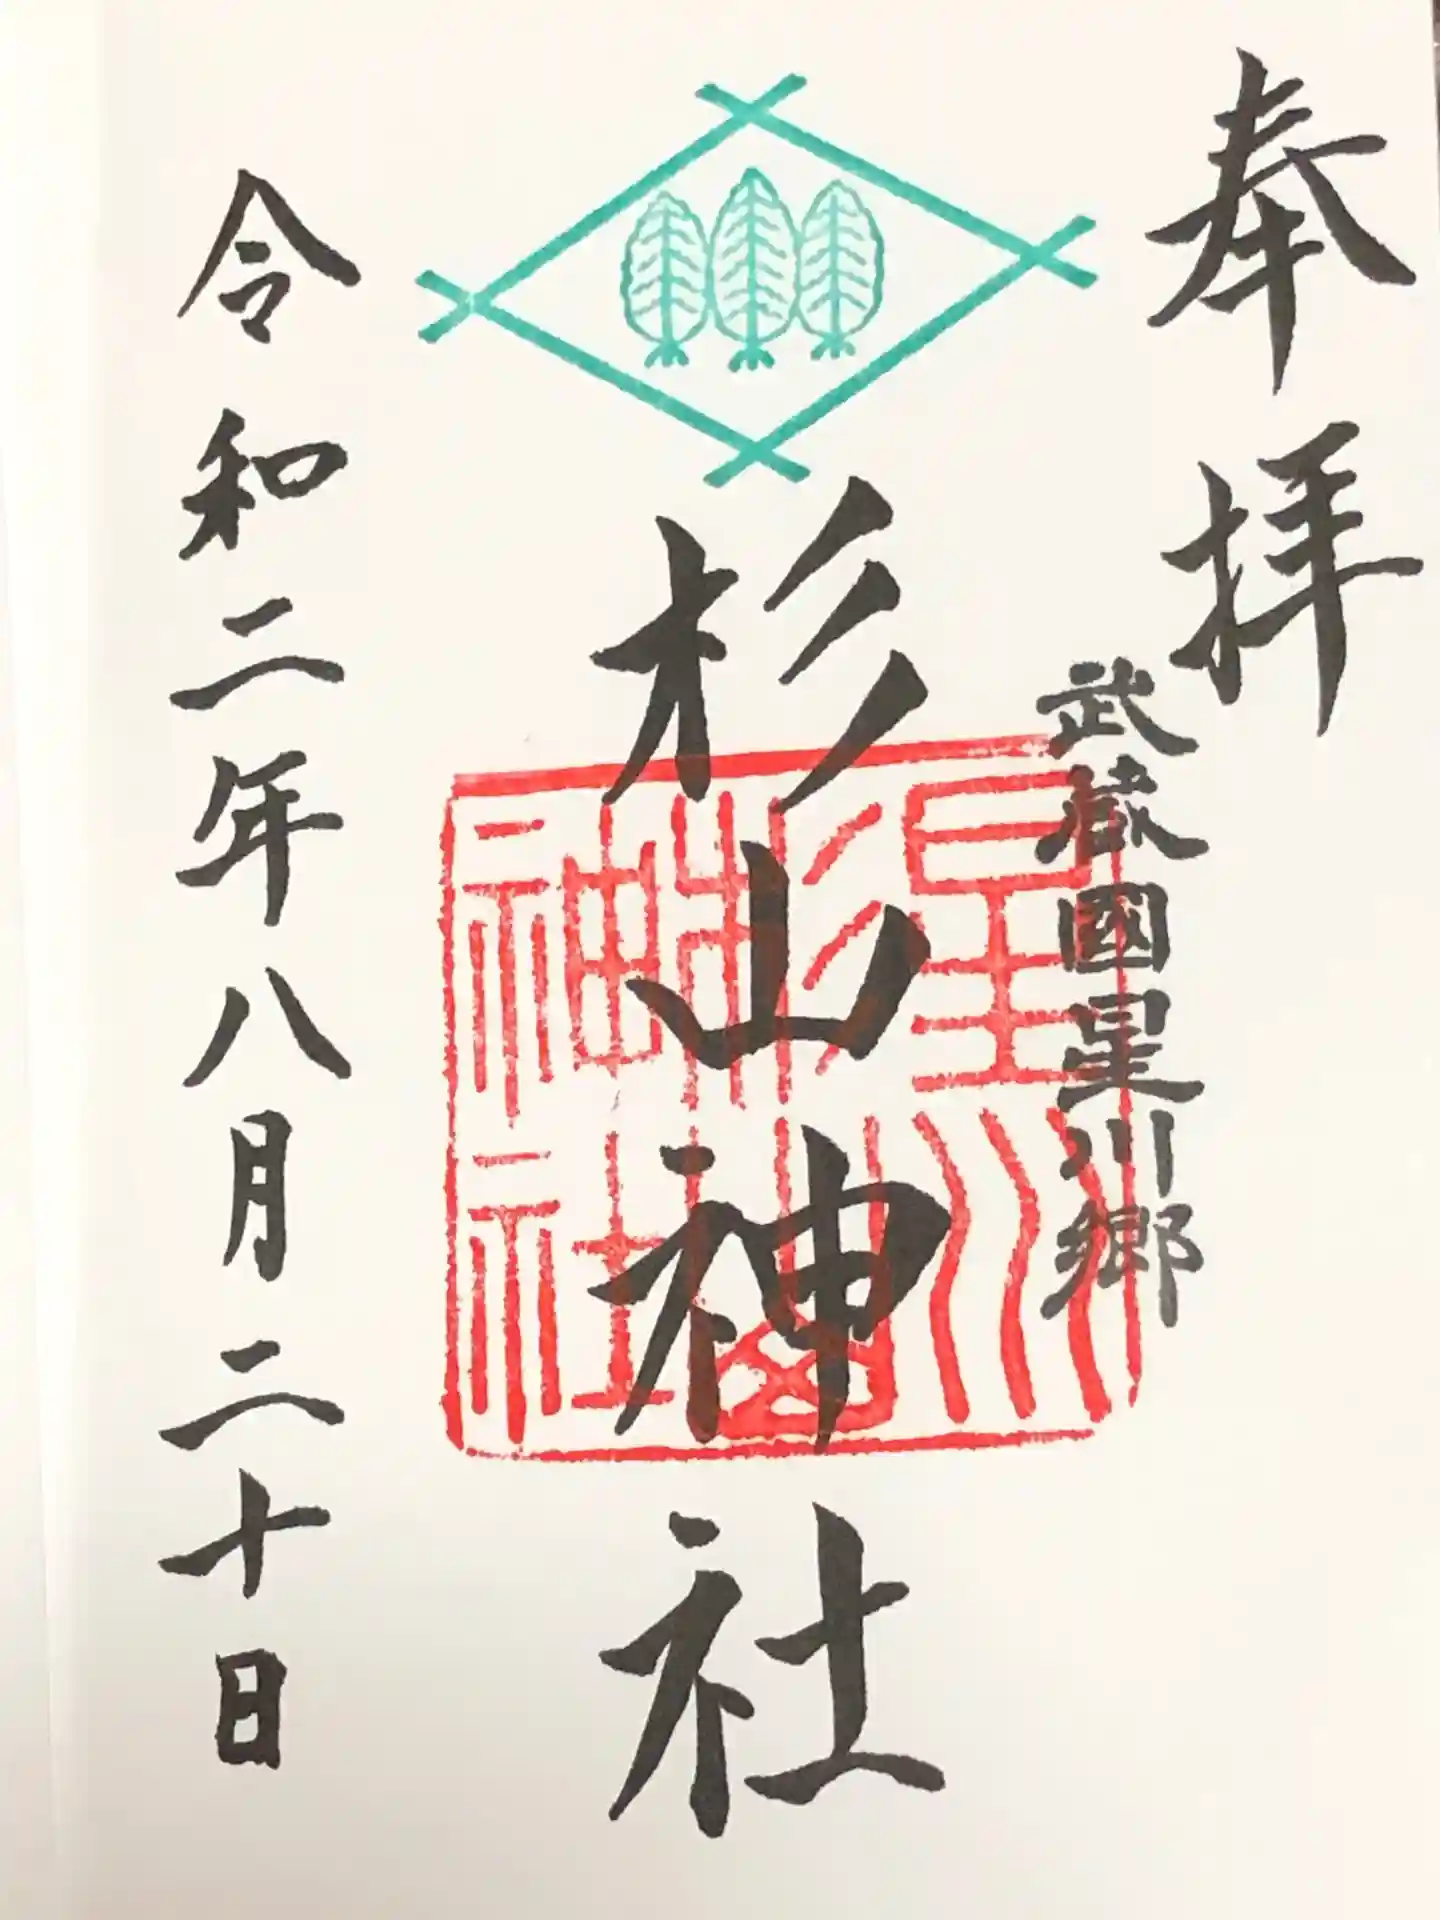 奉拝
武蔵國星川郷
杉山神社
星川杉山神社
令和二年八月二十日